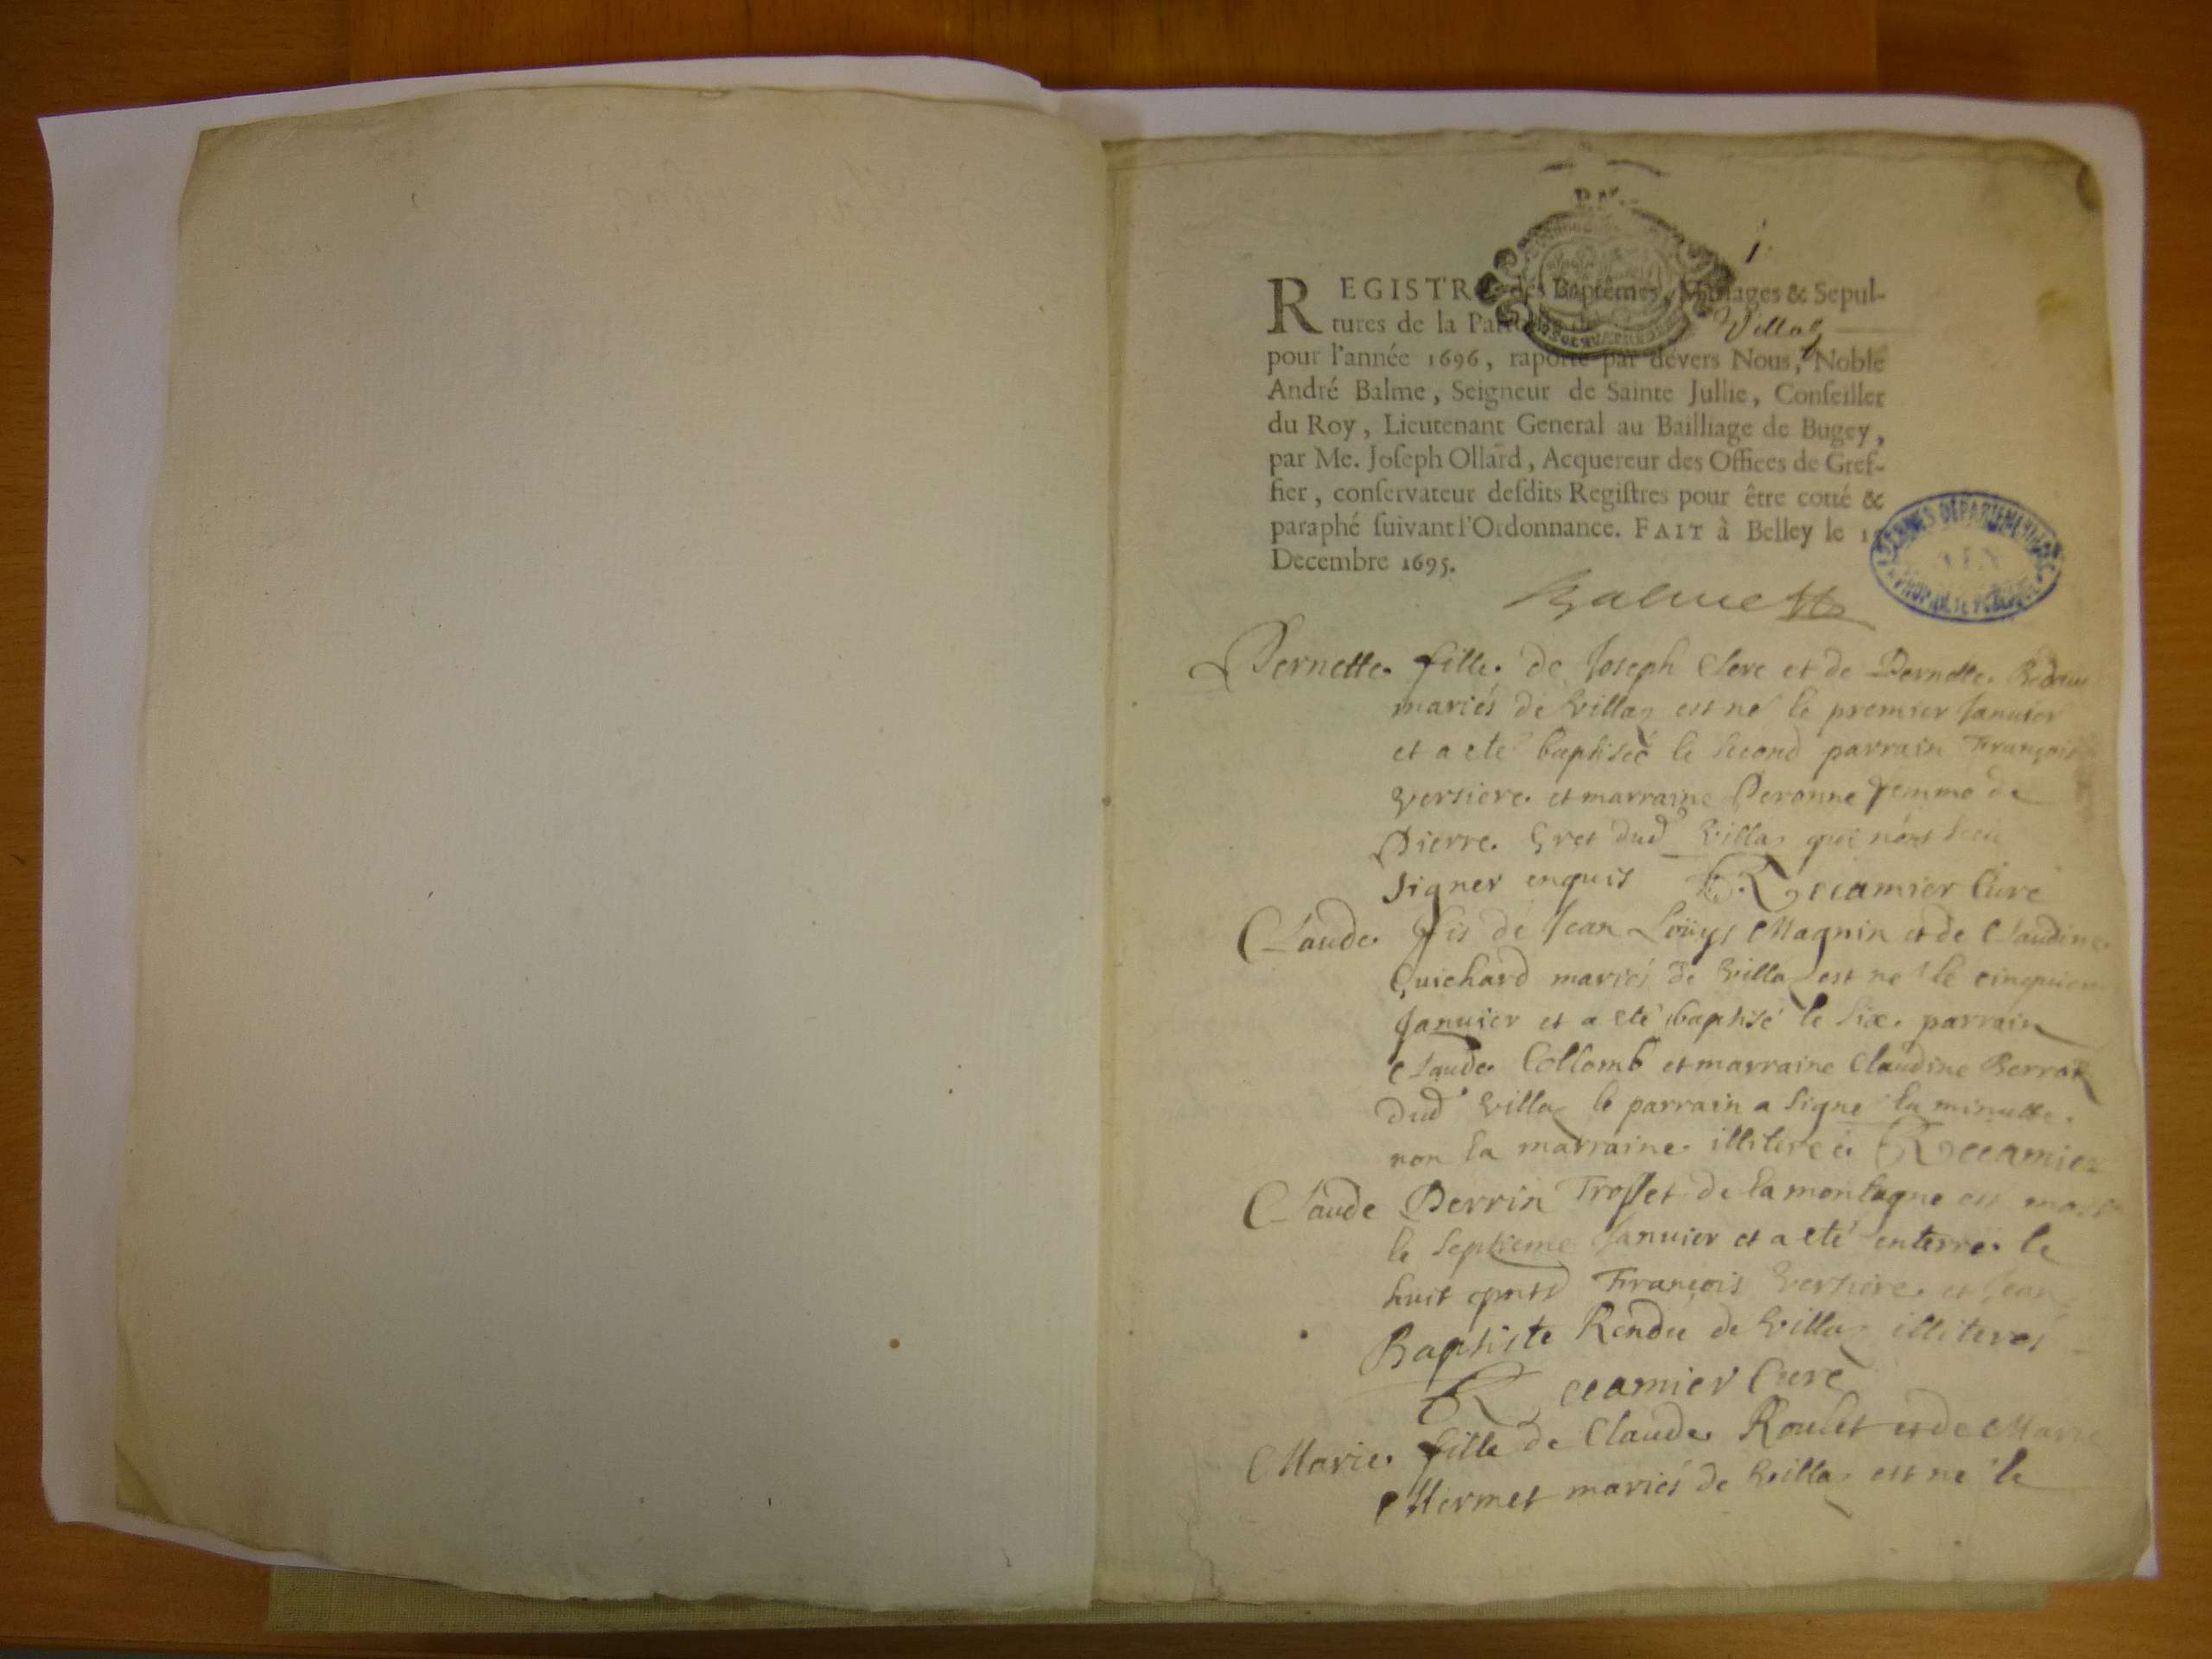 1.
REGISTRE des Baptêmes, Mariages & Sepul-
tures de la Paroisse de Villaz
pour l'année 1696, raporté par dévers Nous, Noble
André Balme, Seigneur de Sainte Jullie, Conseiller
du Roy, Lieutenant General au Bailliage de Bugey,
par Me. Joseph Ollard, Acquereur des Offices de Gref-
fier, conservateur desdits Registres pour être cotté &
paraphé suivant l'Ordonnance. FAIT à Belley le
Decembre 1695.
Balme
ARCHIVES DÉPARTEMENTALES
AIN
PROPRIÉTÉ PUBLIQUE
Pernette fille de Joseph Clerc et de Pernette
mariés de Villaz est né le premier Januier
et a eté baptiseé le second parrain François
Versiere et marraine Peronne femme de
Pierre Gret dud Villaz qui n'ont sceu
signer enquis Recamier Curé
Claude fis de Jean Loüys Magnin et de Claudine
Guichard mariés de Villaz est né le cinquiem
Januier et a eté baptisé le six parrain
Claude Collomb et marraine Claudine Berrot
dud Villaz le parrain a signé la minutte
non la marraine illiteréé Recamier
Claude Perrin Trosset de la montagne est mort
le septieme Januier et a eté enterré le
huit pnts François Versiere et Jean
Baptiste Rendu de Villaz illiterés
Recamier Curé
Marie fille de Claude Roulet et de Marie
Mermet mariés de Villaz est né le